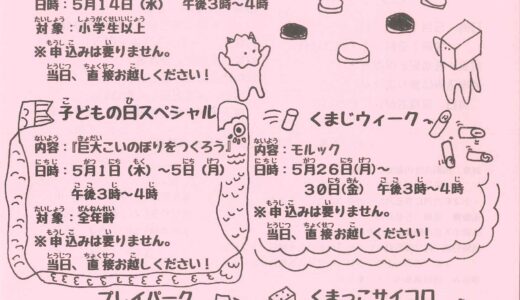 日時：5月14日（水） 午後3時～4時
対象：小学生以上
※申込みは要りません。
当日、直接お越しください！
子どもの日スペシャル
内容：『巨大こいのぼりをつくろう』
日時：5月1日（木）～5日（月）
午後3時～4時
対象：全年齢
※申込みは要りません。
当日、直接お越しください！
くまじウィーク～
内容：モルック
日時：5月26日（月）～
30日（金） 午後3時～4時
※申込みは要りません。
当日、直接お越しください！
プレイパーク
くまっこサイコロ